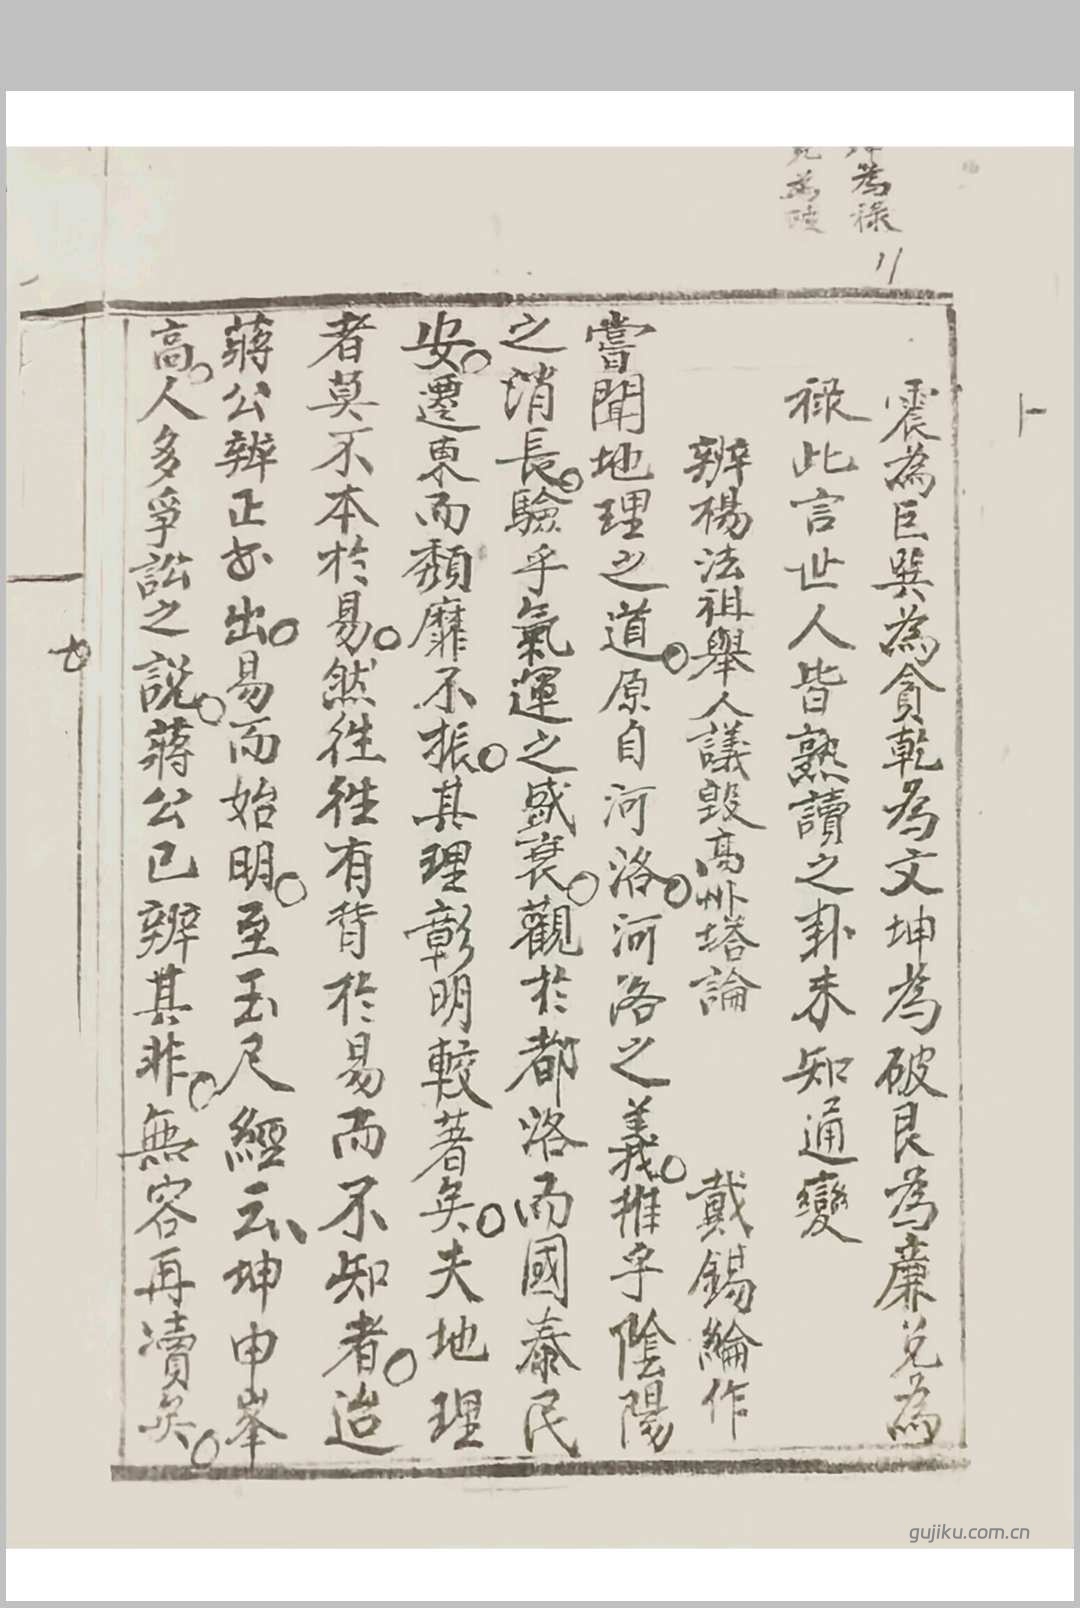 為祿
為
震為巨巽為貪乾為文坤為破艮為廉兌為
祿此言世人皆熟讀之卦未知通變
辨楊法祖舉人議毀高州塔論　戴錫綸作
嘗聞地理之道。原自河洛。河洛之義。推乎陰陽
之消長。驗乎氣運之盛衰。觀於都洛而國泰民
安。遷東而頹靡不振。其理彰明較著矣。夫地理
者莫不本於易。然往往有背於易而不知者。迨
蔣公辨正書出。易而始明。至玉尺經云坤申峯
高。人多爭訟之說。蔣公已辨其非。無容再瀆矣。
七
gujiku.com.cn